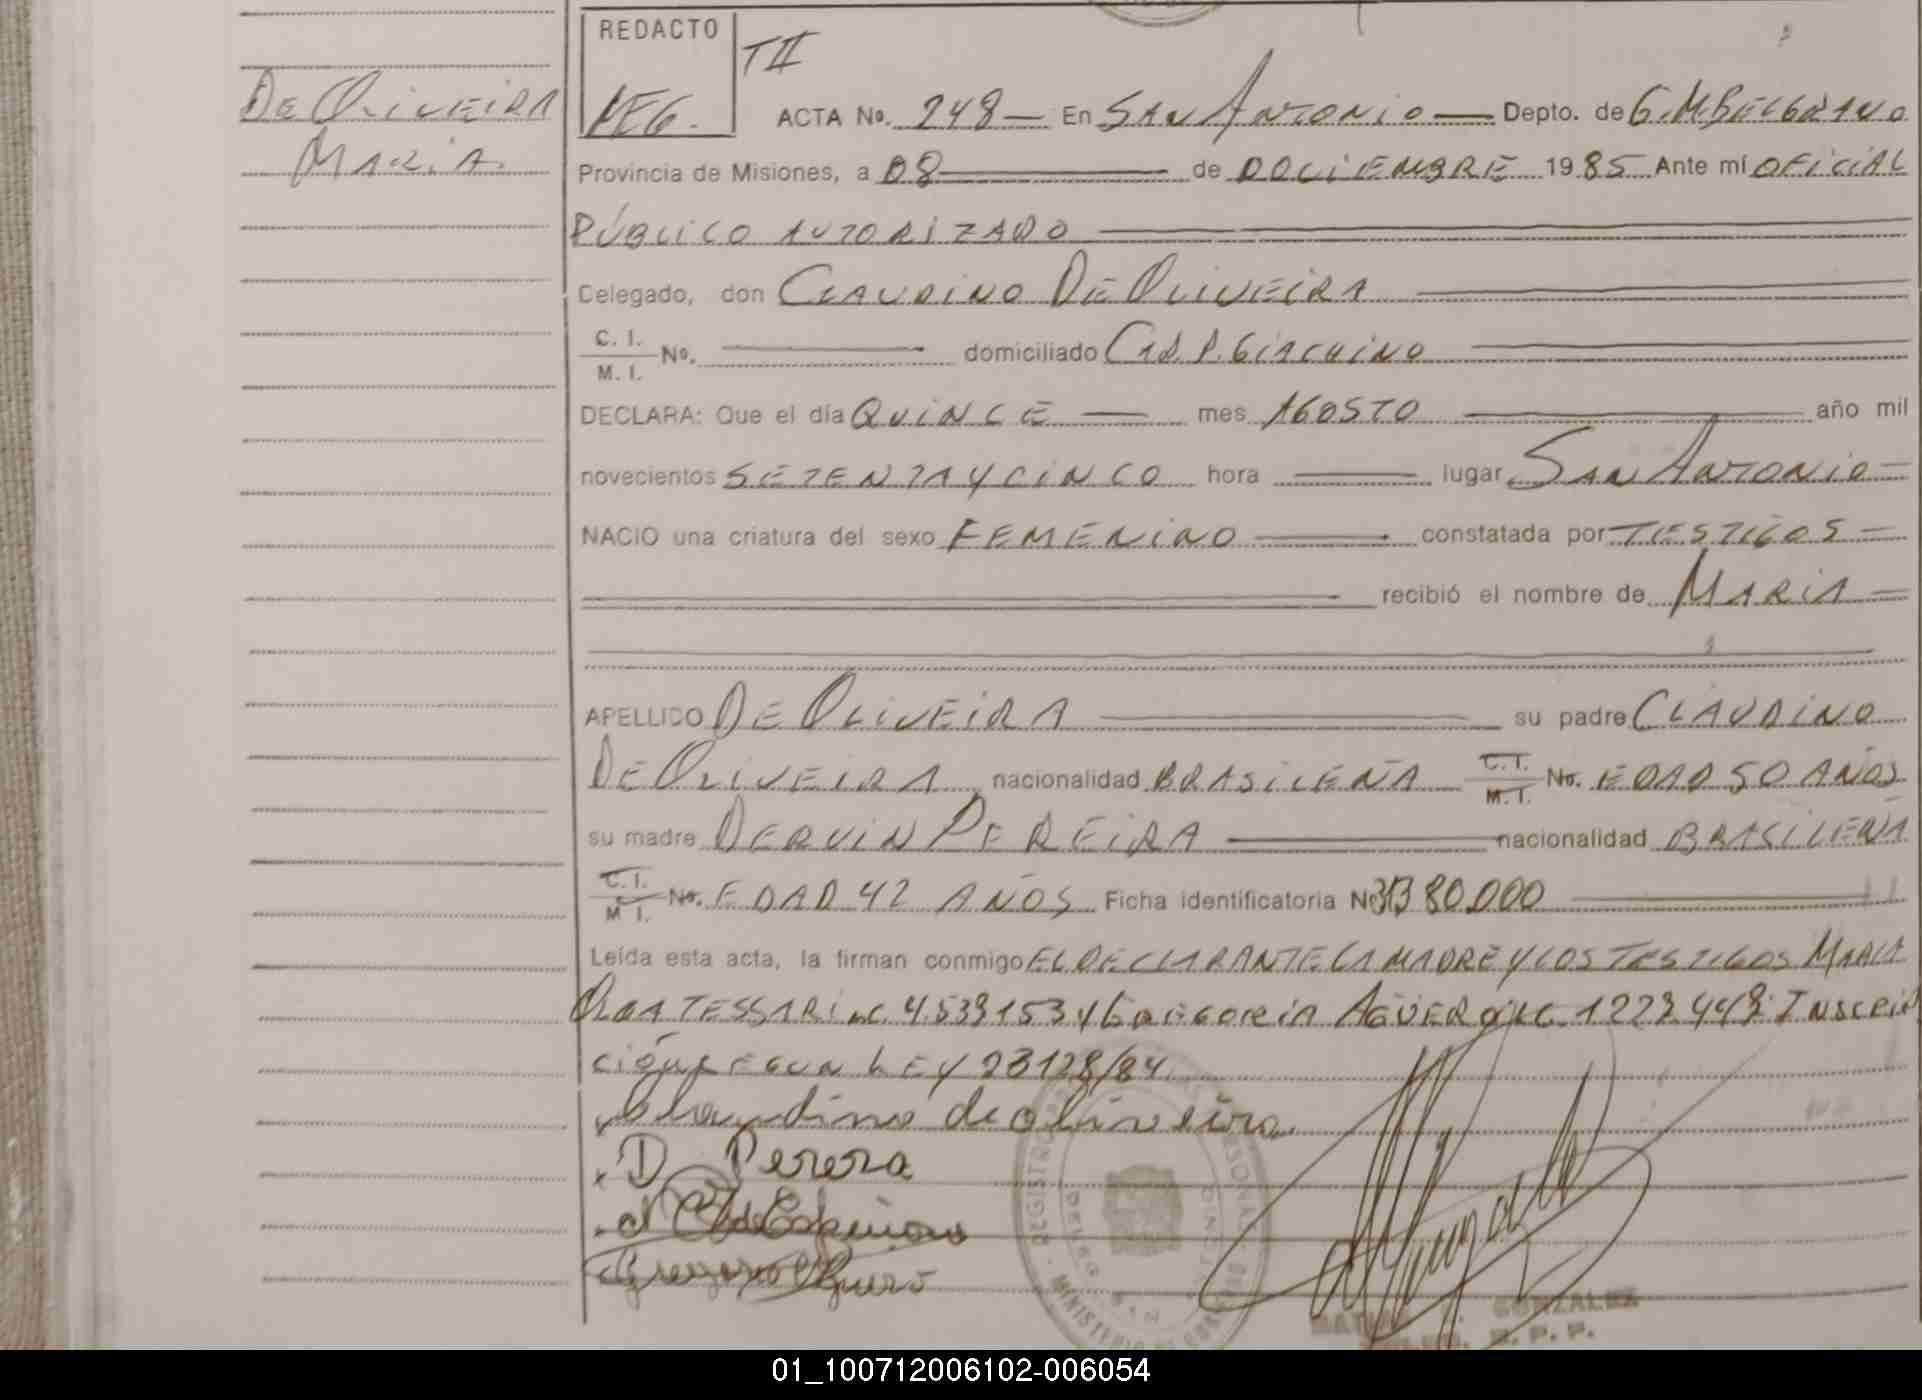 REDACTO
TII
De Oliveira
Maria.
ACTA No. 248 En San Antonio Depto. de G. M. Belgrano
Provincia de Misiones, a 08 de DOCIEMBRE 1985 Ante mí OFICIAL
PÚBLICO AUTORIZADO
Delegado, don CLAUDINO DE OLIVEIRA
C. I.
M. I. No. domiciliado P. GIACHINO
DECLARA: Que el día QUINCE mes AGOSTO año mil
novecientos SETENTA Y CINCO hora lugar SAN ANTONIO
NACIO una criatura del sexo FEMENINO constatada por TESTIGOS
recibió el nombre de MARIA
APELLIDO DE OLIVEIRA su padre CLAUDINO
DE OLIVEIRA nacionalidad BRASILEÑA C.I. M.I. No. EDAD 50 AÑOS
su madre DERVIN PEREIRA nacionalidad BRASILEÑA
C.I. M I. No. EDAD 42 AÑOS Ficha identificatoria No 80.000
Leída esta acta, la firman conmigo EL DECLARANTE LA MADRE Y LOS TESTIGOS MARIA
TESSARI 4.539153 y AGUERO Inscrip
ción según LEY 23128/84
Claudino de oliveira
D Perera
GONZALEZ
01_100712006102-006054